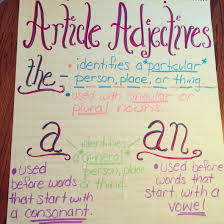 Article Adjectives
the- • identifies a *particular*
person, place, or thing.
• used with singular or
plural nouns.
a
identifies
a general
person,
place,
or thing.
an
• used
before words
that start with
a consonant.
• Used before
words that
start with a
vowel